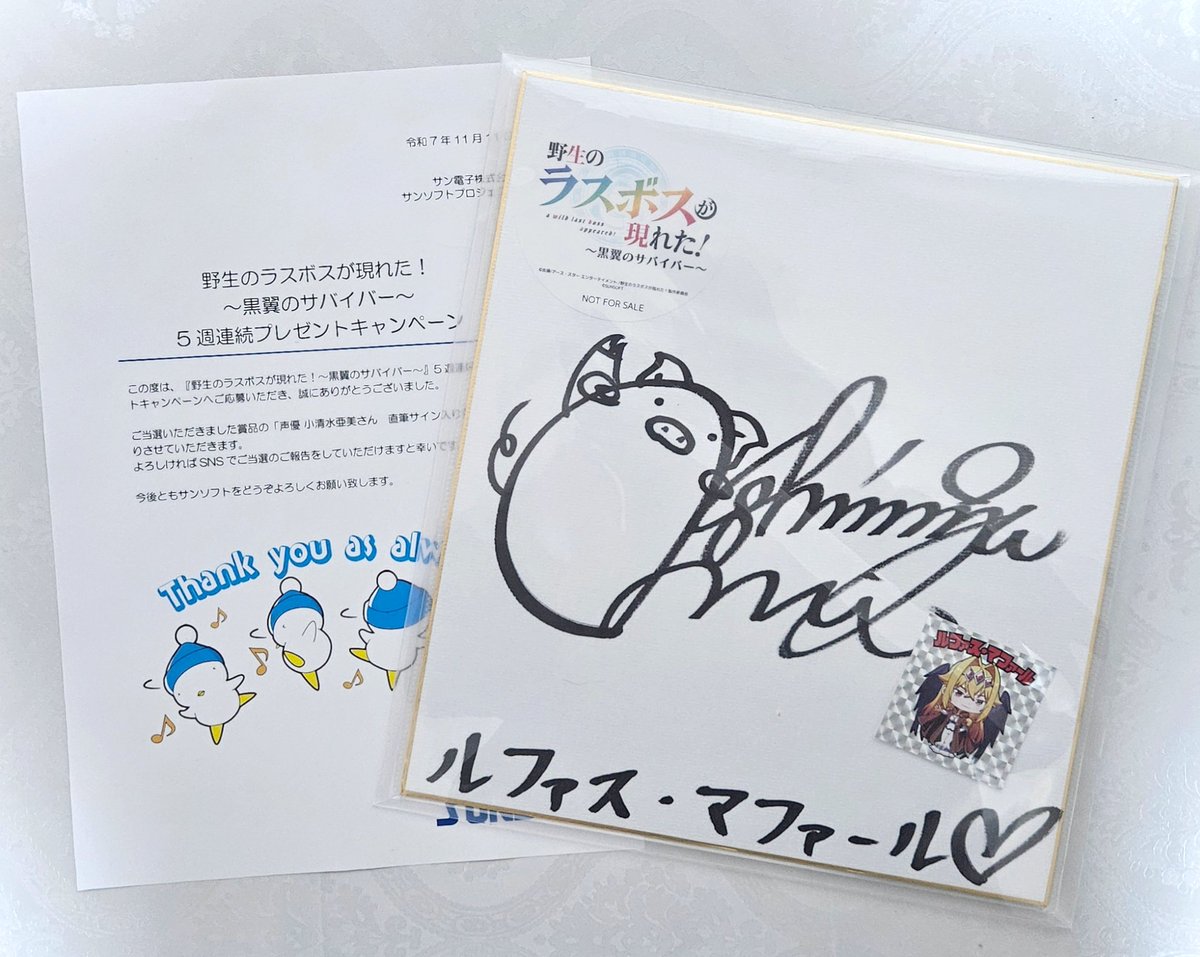 令和7年11月1
サン電子株式会
サンソフトプロジェ
野生のラスボスが現れた！
～黒翼のサバイバー～
5週連続プレゼントキャンペーン
この度は、『野生のラスボスが現れた！～黒翼のサバイバー～』5週連続
トキャンペーンへご応募いただき、誠にありがとうございました。
ご当選いただきました賞品の「声優 小清水亜美さん　直筆サイン入り
りさせていただきます。
よろしければSNSでご当選のご報告をしていただけますと幸いです
今後ともサンソフトをどうぞよろしくお願い致します。
Thank you as alw
野生の
ラスボスが
a wild last boss
appeared!
現れた!
～黒翼のサバイバー～
©炎頭/アース・スター エンターテイメント/野生のラスボスが現れた！製作委員会
©SUNSOFT
NOT FOR SALE
Koshimizu
Ami
ルファス・マファール
ルファス・マファール♡